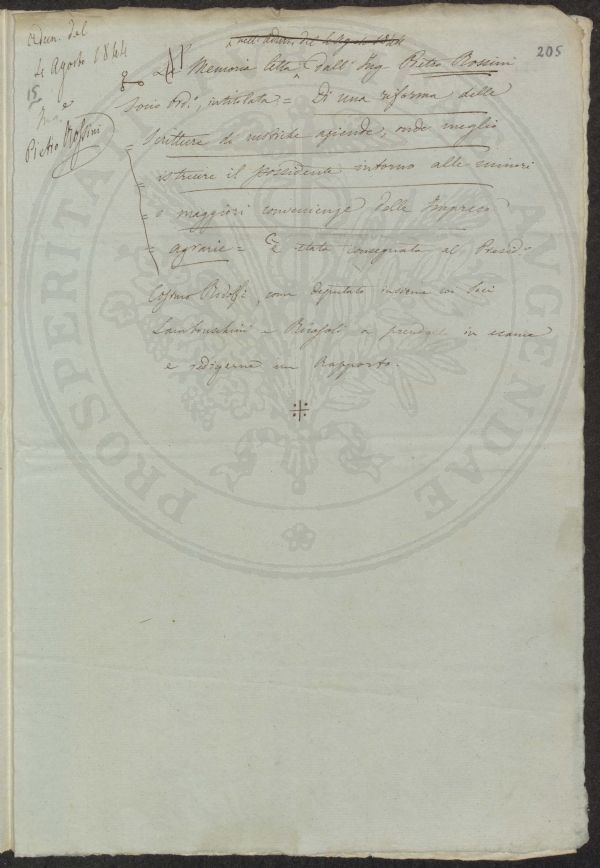 Adun. del
4 Agosto 1844
15
M.e
Pietro Rossini
nell'adun. del 4 Agosto 1844
205
La Memoria letta dall'Ing Pietro Rossini
Socio Ord.o, intitolata = Di una riforma delle
= Scritture di rustiche aziende, onde meglio
= istruire il possidente intorno alle minori
= o maggiori convenienze delle Imprese
= Agrarie = è stata consegnata al Presid.e
Cosimo Ridolfi, come deputato insieme coi Soci
Lambruschini e Ricasoli a prendere in esame
e redigerne un Rapporto.
PROSPERITATI AUGENDAE